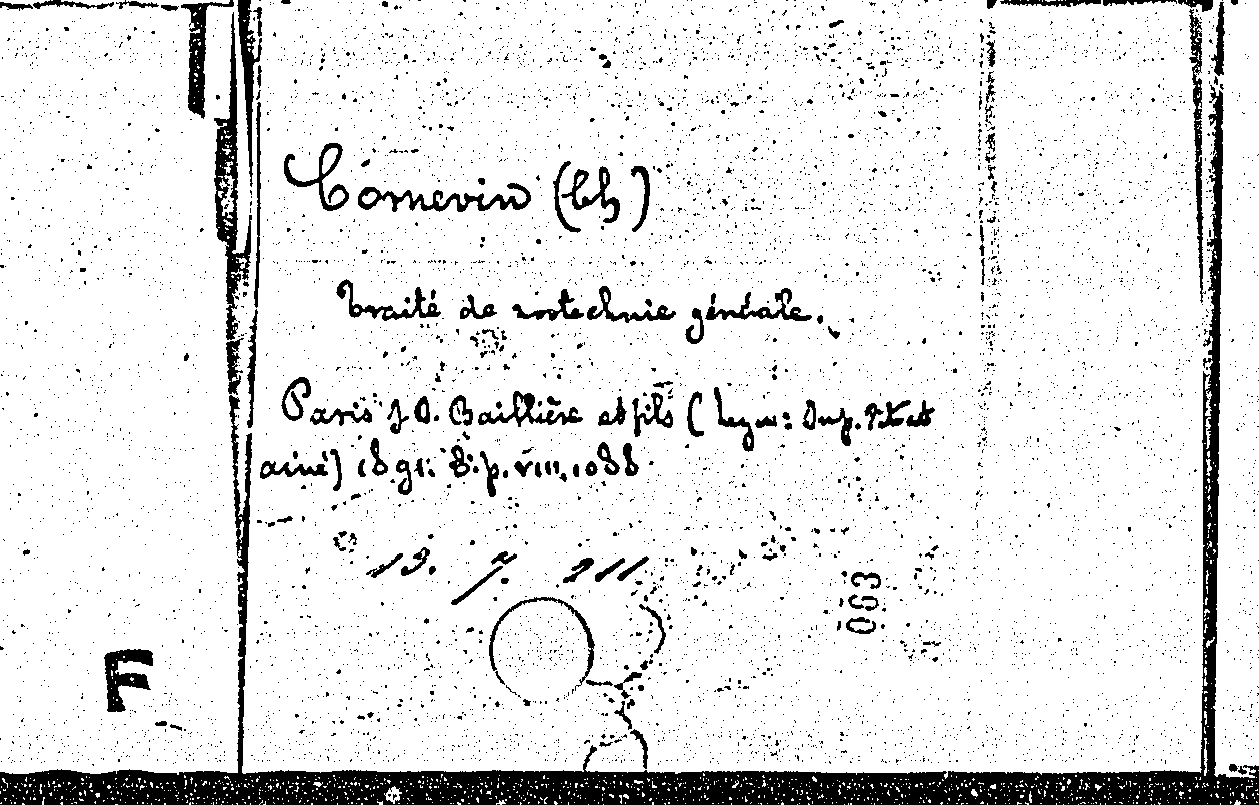 Cornevin (Ch)
Traité de zootechnie générale.
Paris J B. Baillière et fils (Imp.
ainé) 1891. 8.p. VIII, 1088
13. 7. 211
063
F